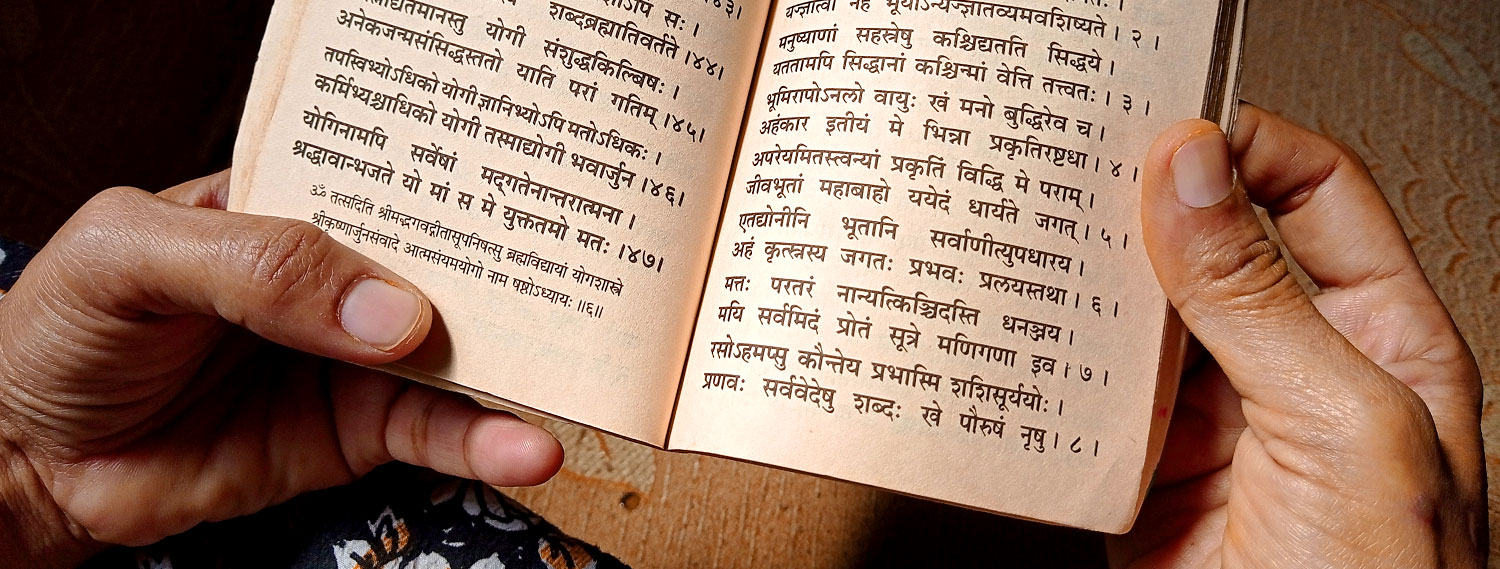 सः ।
शब्दब्रह्मातिवर्तते ।४४।
योगी संशुद्धकिल्बिषः ।
अनेकजन्मसंसिद्धस्ततो याति परां गतिम् ।४५।
तपस्विभ्योऽधिको योगी ज्ञानिभ्योऽपि मतोऽधिकः ।
कर्मिभ्यश्चाधिको योगी तस्माद्योगी भवार्जुन ।४६।
योगिनामपि सर्वेषां मद्गतेनान्तरात्मना ।
श्रद्धावान्भजते यो मां स मे युक्ततमो मतः ।४७।
ॐ तत्सदिति श्रीमद्भगवद्गीतासूपनिषत्सु ब्रह्मविद्यायां योगशास्त्रे
श्रीकृष्णार्जुनसंवादे आत्मसंयमयोगो नाम षष्ठोऽध्यायः ॥६॥
यज्ज्ञात्वा नेह भूयोऽन्यज्ज्ञातव्यमवशिष्यते । २ ।
मनुष्याणां सहस्रेषु कश्चिद्यतति सिद्धये ।
यततामपि सिद्धानां कश्चिन्मां वेत्ति तत्त्वतः । ३ ।
भूमिरापोऽनलो वायुः खं मनो बुद्धिरेव च ।
अहंकार इतीयं मे भिन्ना प्रकृतिरष्टधा । ४ ।
अपरेयमितस्त्वन्यां प्रकृतिं विद्धि मे पराम् ।
जीवभूतां महाबाहो ययेदं धार्यते जगत् । ५ ।
एतद्योनीनि भूतानि सर्वाणीत्युपधारय ।
अहं कृत्स्नस्य जगतः प्रभवः प्रलयस्तथा । ६ ।
मत्तः परतरं नान्यत्किञ्चिदस्ति धनञ्जय ।
मयि सर्वमिदं प्रोतं सूत्रे मणिगणा इव । ७ ।
रसोऽहमप्सु कौन्तेय प्रभास्मि शशिसूर्ययोः ।
प्रणवः सर्ववेदेषु शब्दः खे पौरुषं नृषु । ८ ।